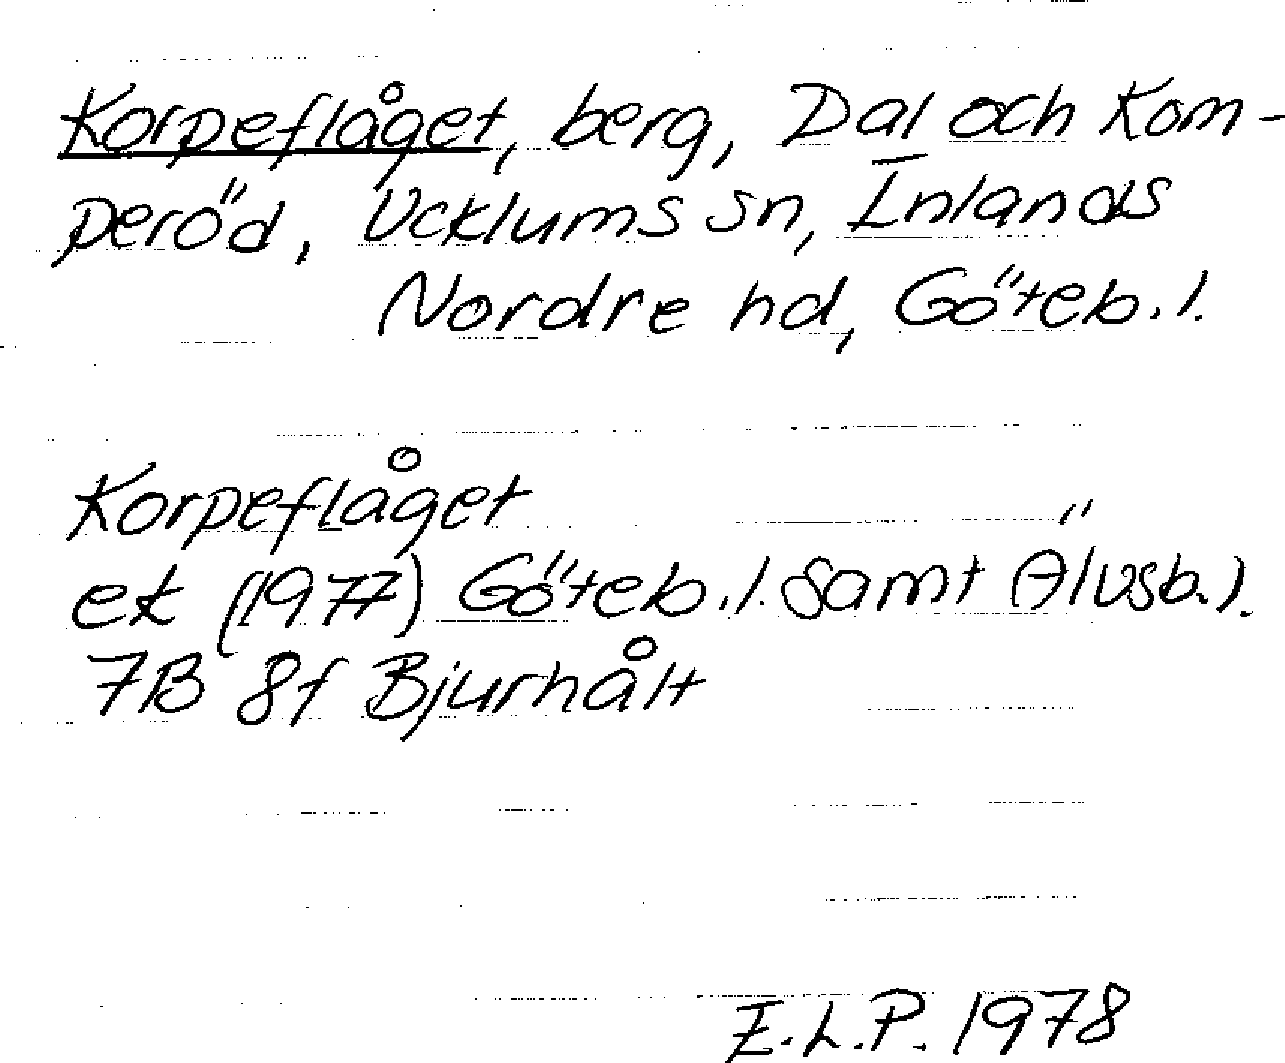 Korpeflåget, berg, Dal och Kom-
peröd, Ucklums sn, Inlands
Nordre hd, Göteb. l.
Korpeflåget
ek (1977) Göteb. l. samt Älvsb. l.
7B 8f Bjurhålt
E.L.P. 1978